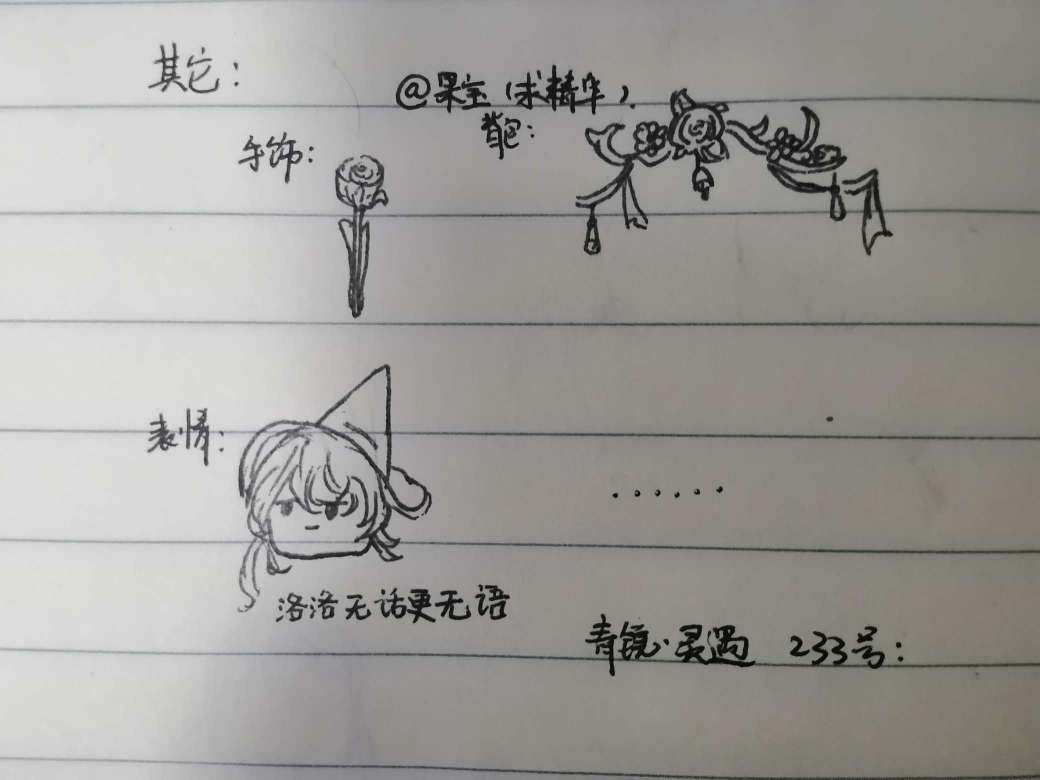 其它：
@果宝（求精华）.
手饰：
背包：
表情：
......
洛洛无话更无语
青镜·灵遇 233号：